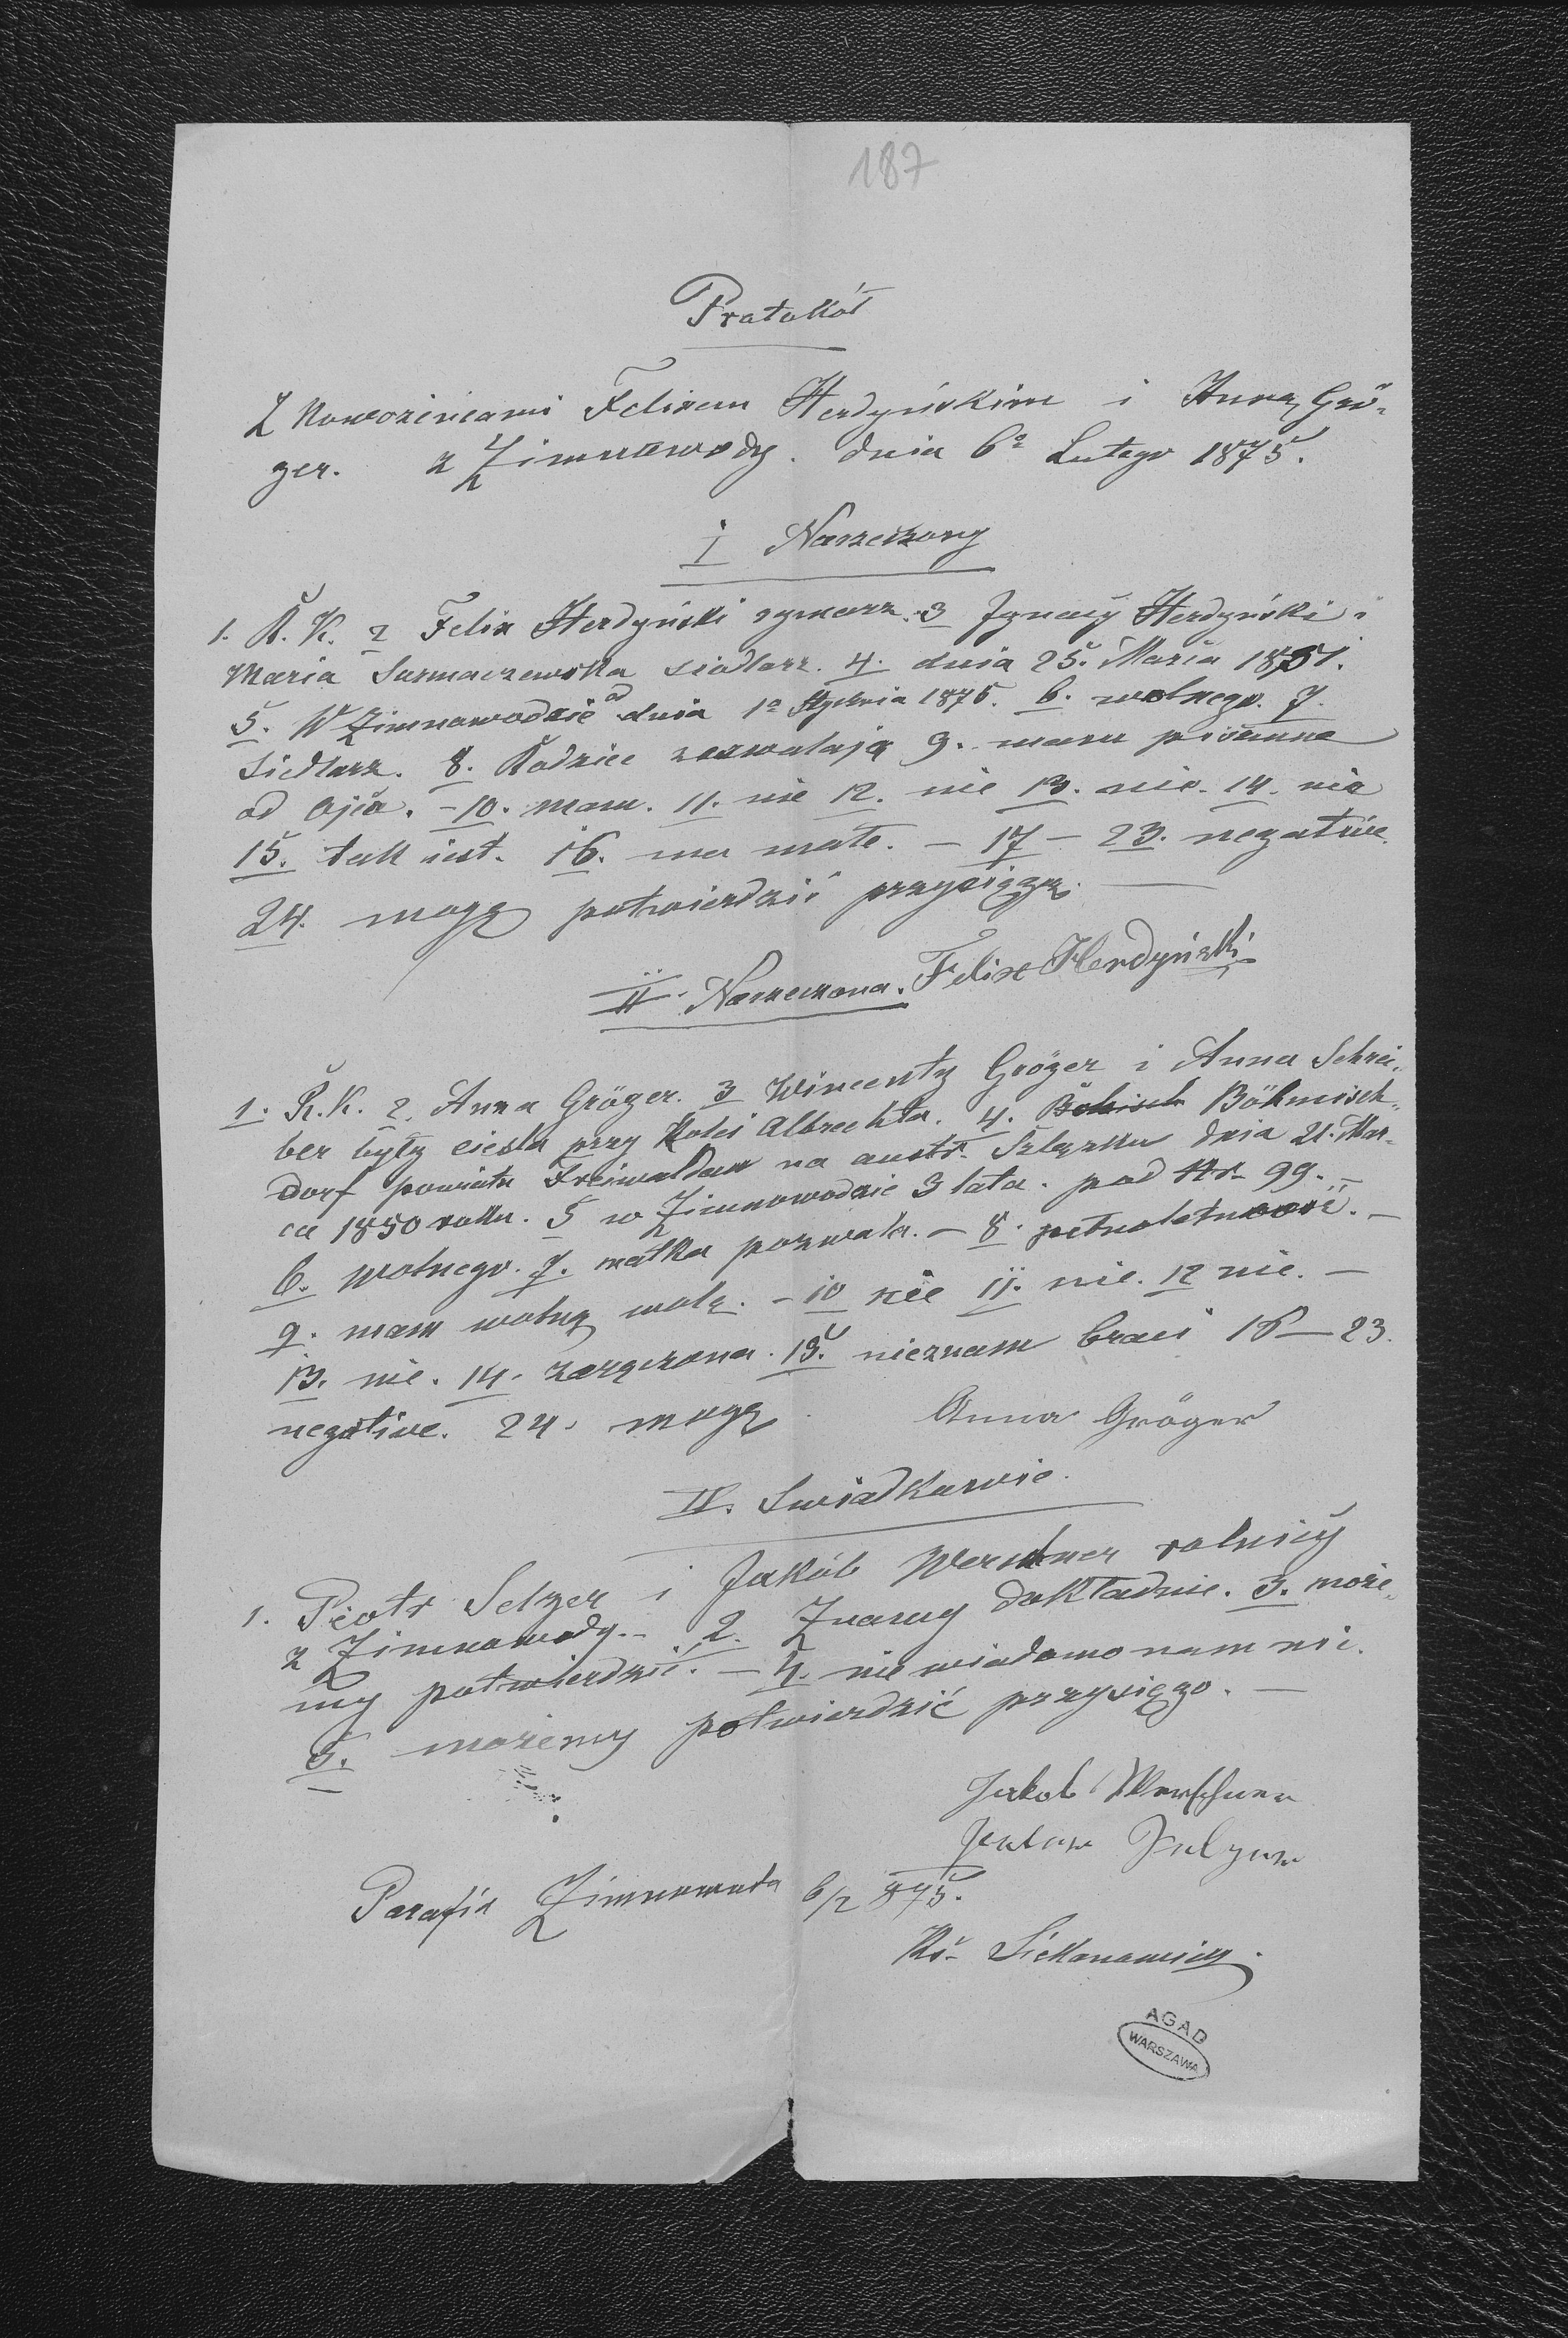 187
Protokół
Z Nowożeńcami Felixem Herdyńskim i Anną Grö-
ger. z Zimnawody. dnia 6º Lutego 1875.
I Narzeczony
1. R. K. 2 Felix Herdyński rymarz. 3 Ignacy Herdyński i
Maria Surmaczewska siodlarz. 4. dnia 25. Maria 1851.
5. W Zimnawodzie od dnia 1º Stycznia 1875. 6. wolnego. 7.
Siedlarz. 8. Rodzice zezwalają 9. mam pisemne
od ojca. - 10. mam. 11. nie 12. nie 13. nie. 14. nie
15. tak jest. 16. ma mate. - 17 - 23. negative.
24. mogę potwierdzić przysięgą. —
II. Narzeczona. Felix Herdyński
1. R. K. 2. Anna Gröger. 3 Wincenty Gröger i Anna Schrei-
ber były cieśla przy Kolei Albrechta. 4. Böhmisch-
dorf powiatu Freiwaldau na austr. Szląsku dnia 21. Mar-
ca 1850 roku. 5 w Zimnowodzie 3 lata. pod Nr 99. -
6. wolnego. 7. matka pozwala. - 8. pełnoletność. -
9. mam wolną wolę. - 10 nie 11. nie. 12 nie. -
13. nie. 14. zaręczona. 15. nieznam braci 16 - 23.
negative. 24. mogę Anna Gröger
II. Swiadkowie.
1. Piotr Selzer i Jakób Werschner rolnicy
z Zimnawody.. 2. Znamy dokładnie. 3. może-
my potwierdzić. - 4. nie wiadomo nam nic.
5. możemy potwierdzić przysięgo. -
Jakob Werschner
Parafia Zimnawoda 6/2 875.
Ks.
AGAD
WARSZAWA